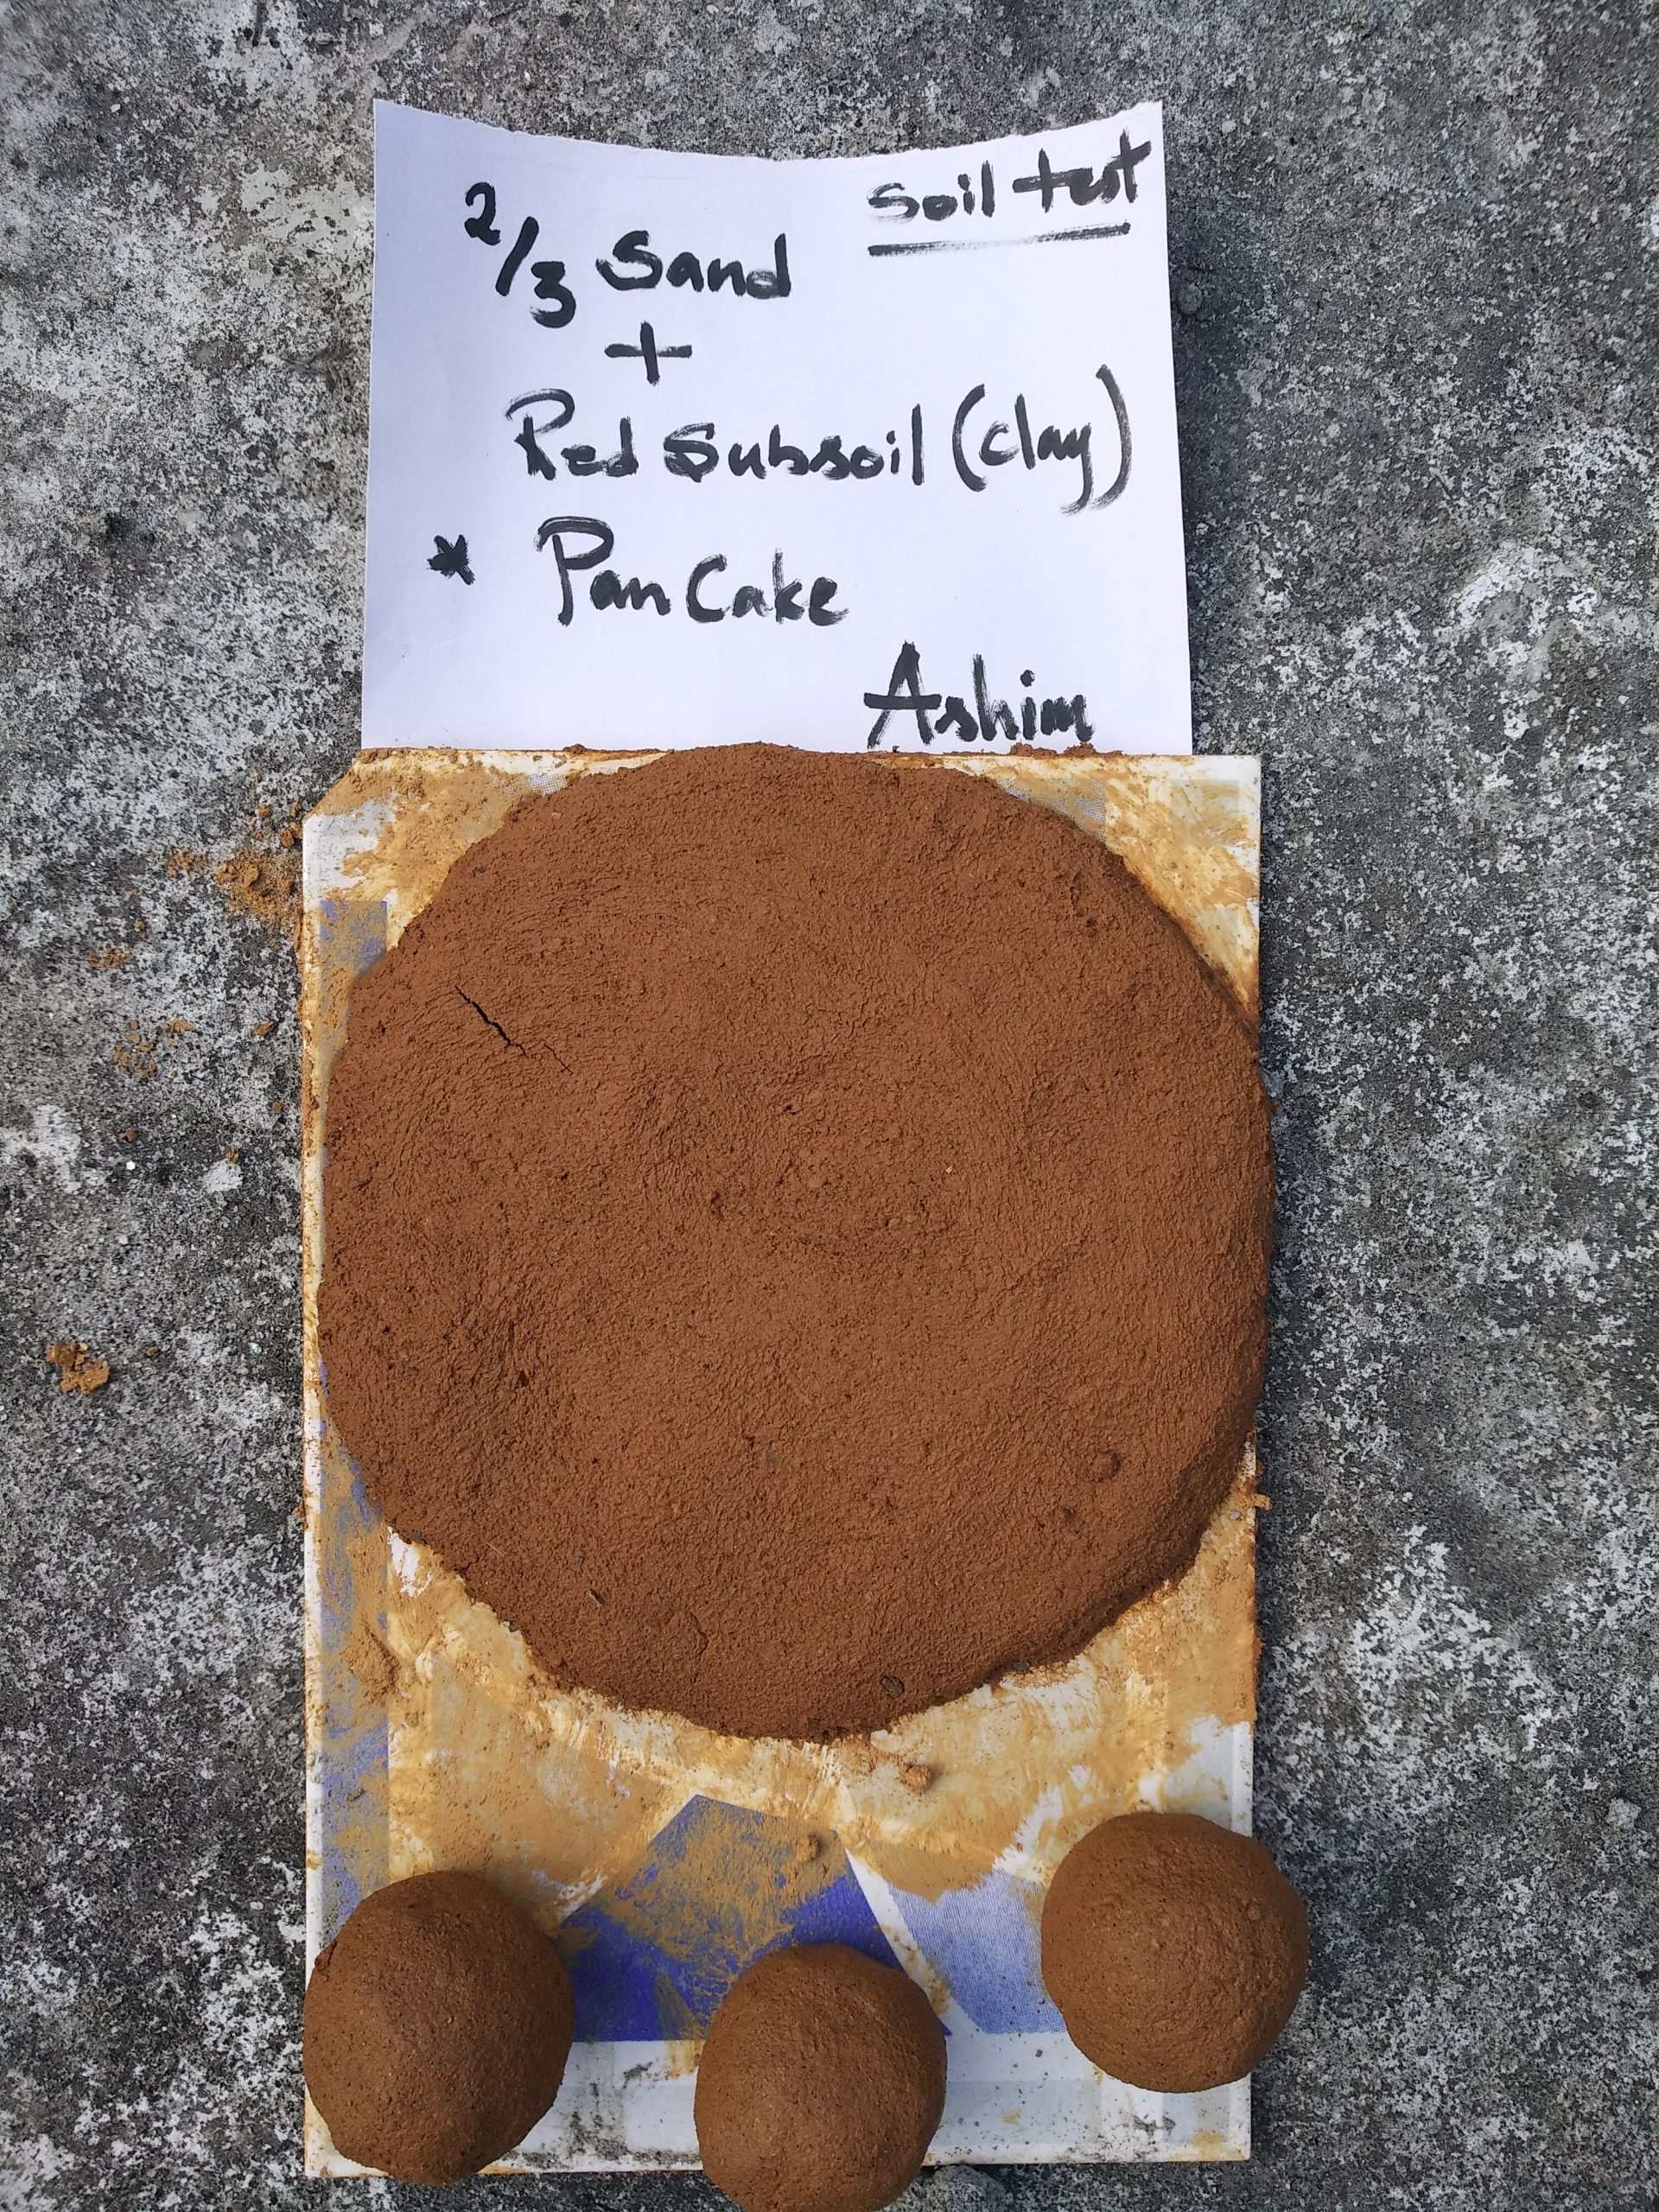 Soil test
2/3 Sand
+
Red Subsoil (Clay)
* Pan Cake
Ashim